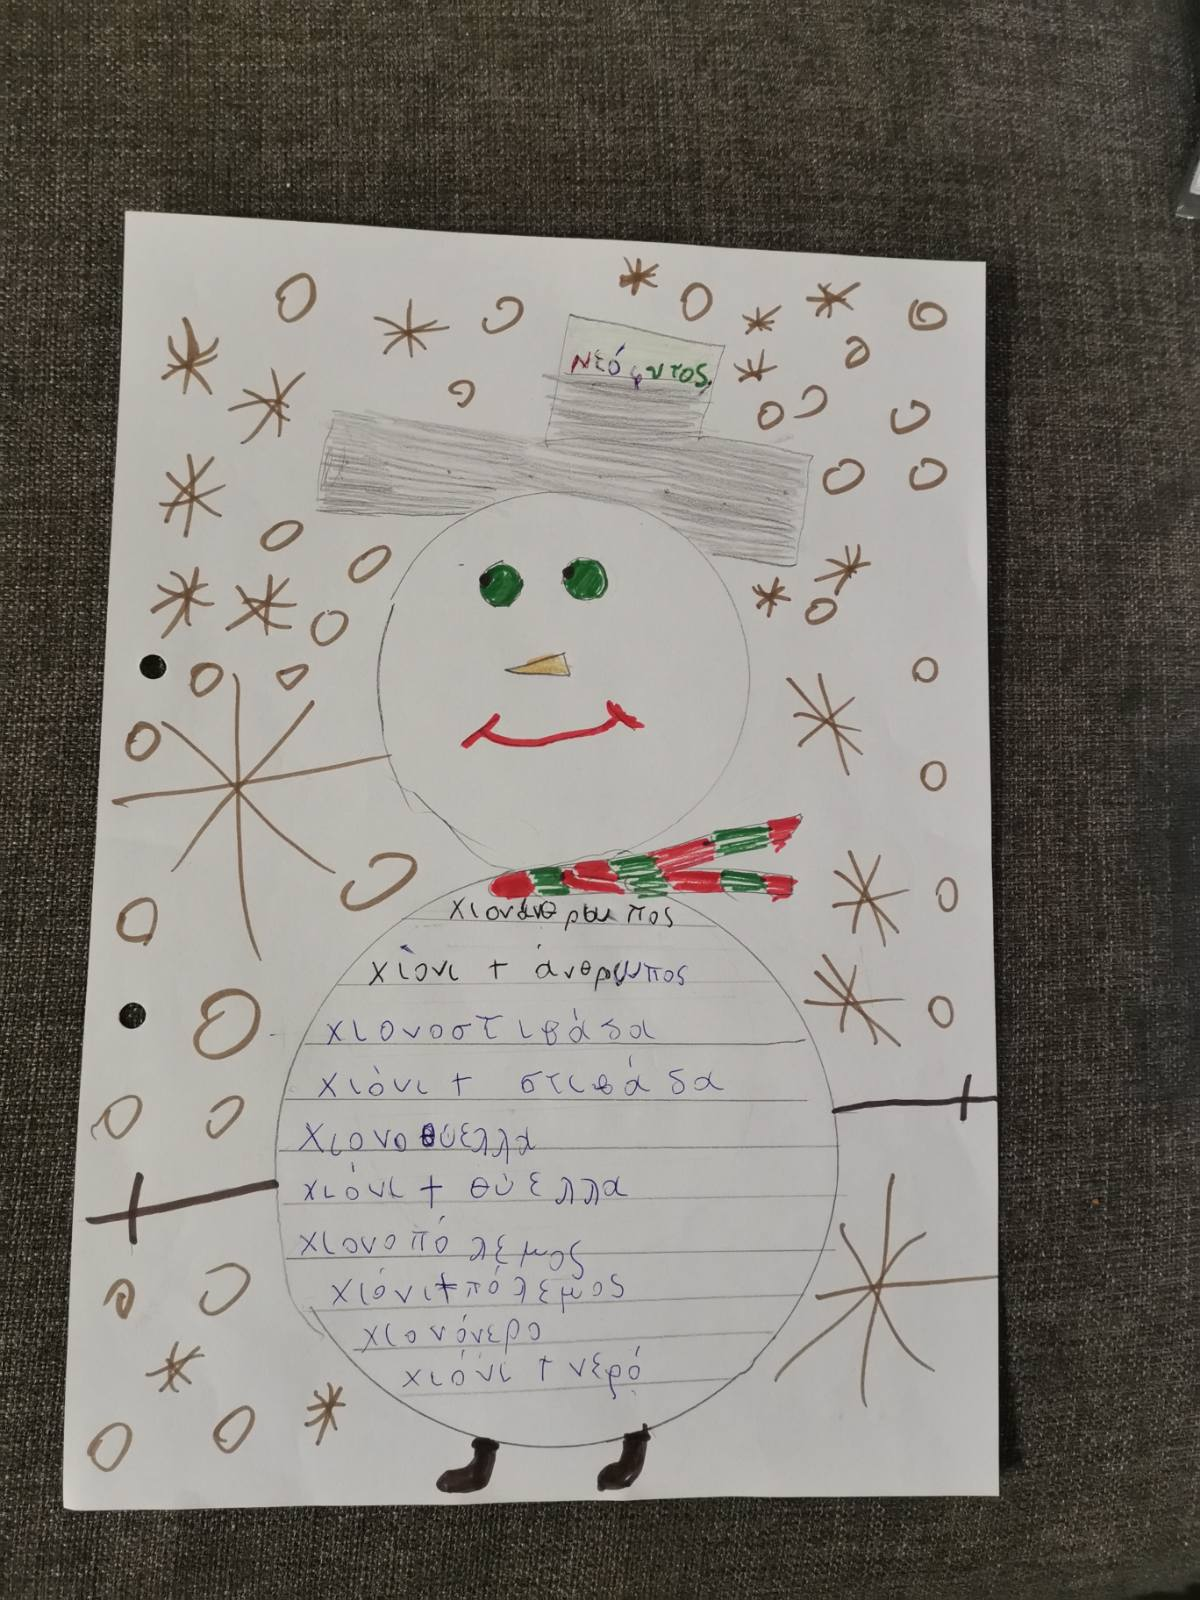 Νεόφυτος
χιονάνθρωπος
χιόνι + άνθρωπος
χιονοστιβάδα
χιόνι + στιβάδα
χιονοθύελλα
χιόνι + θύελλα
χιονοπόλεμος
χιόνι + πόλεμος
χιονόνερο
χιόνι + νερό